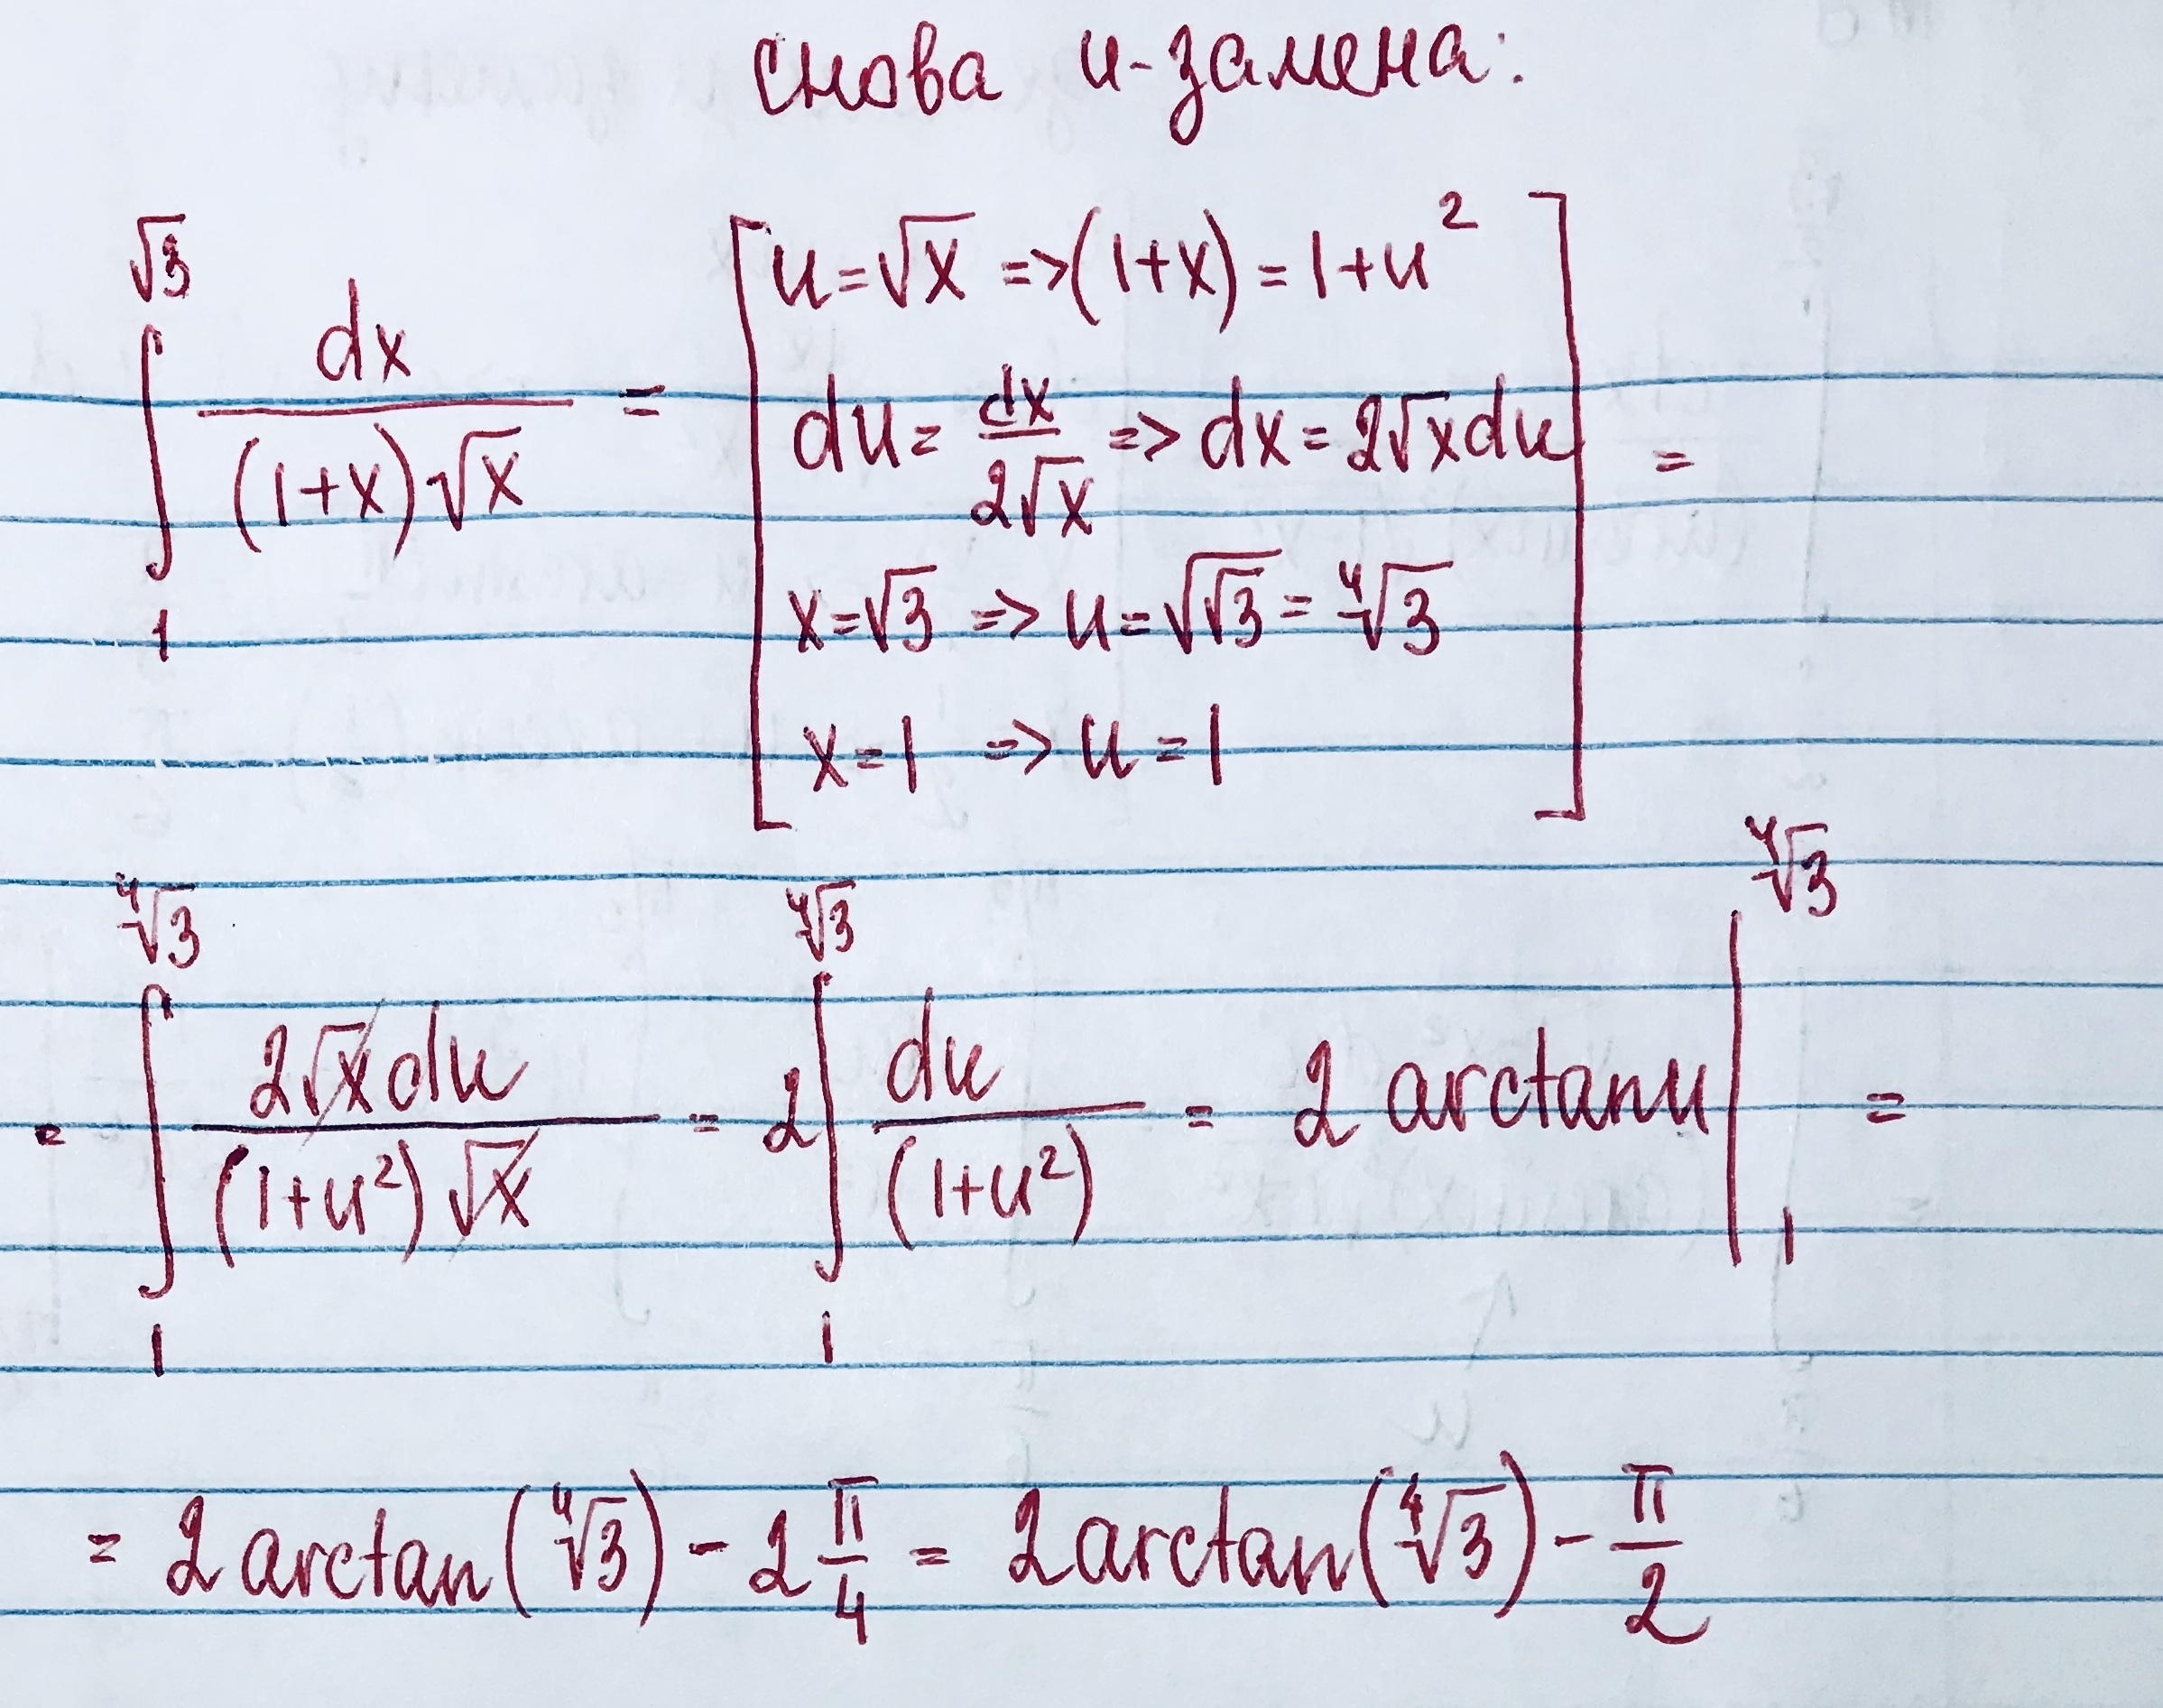 снова u-замена:
∫₁^√3 dx/((1+x)√x) = [u=√x => (1+x) = 1+u²
du = dx/(2√x) => dx = 2√x du
x=√3 => u=√√3 = ⁴√3
x=1 => u=1] =
= ∫₁^⁴√3 2√x du/((1+u²)√x) = 2∫₁^⁴√3 du/(1+u²) = 2 arctan u |₁^⁴√3 =
= 2 arctan(⁴√3) - 2 π/4 = 2 arctan(⁴√3) - π/2